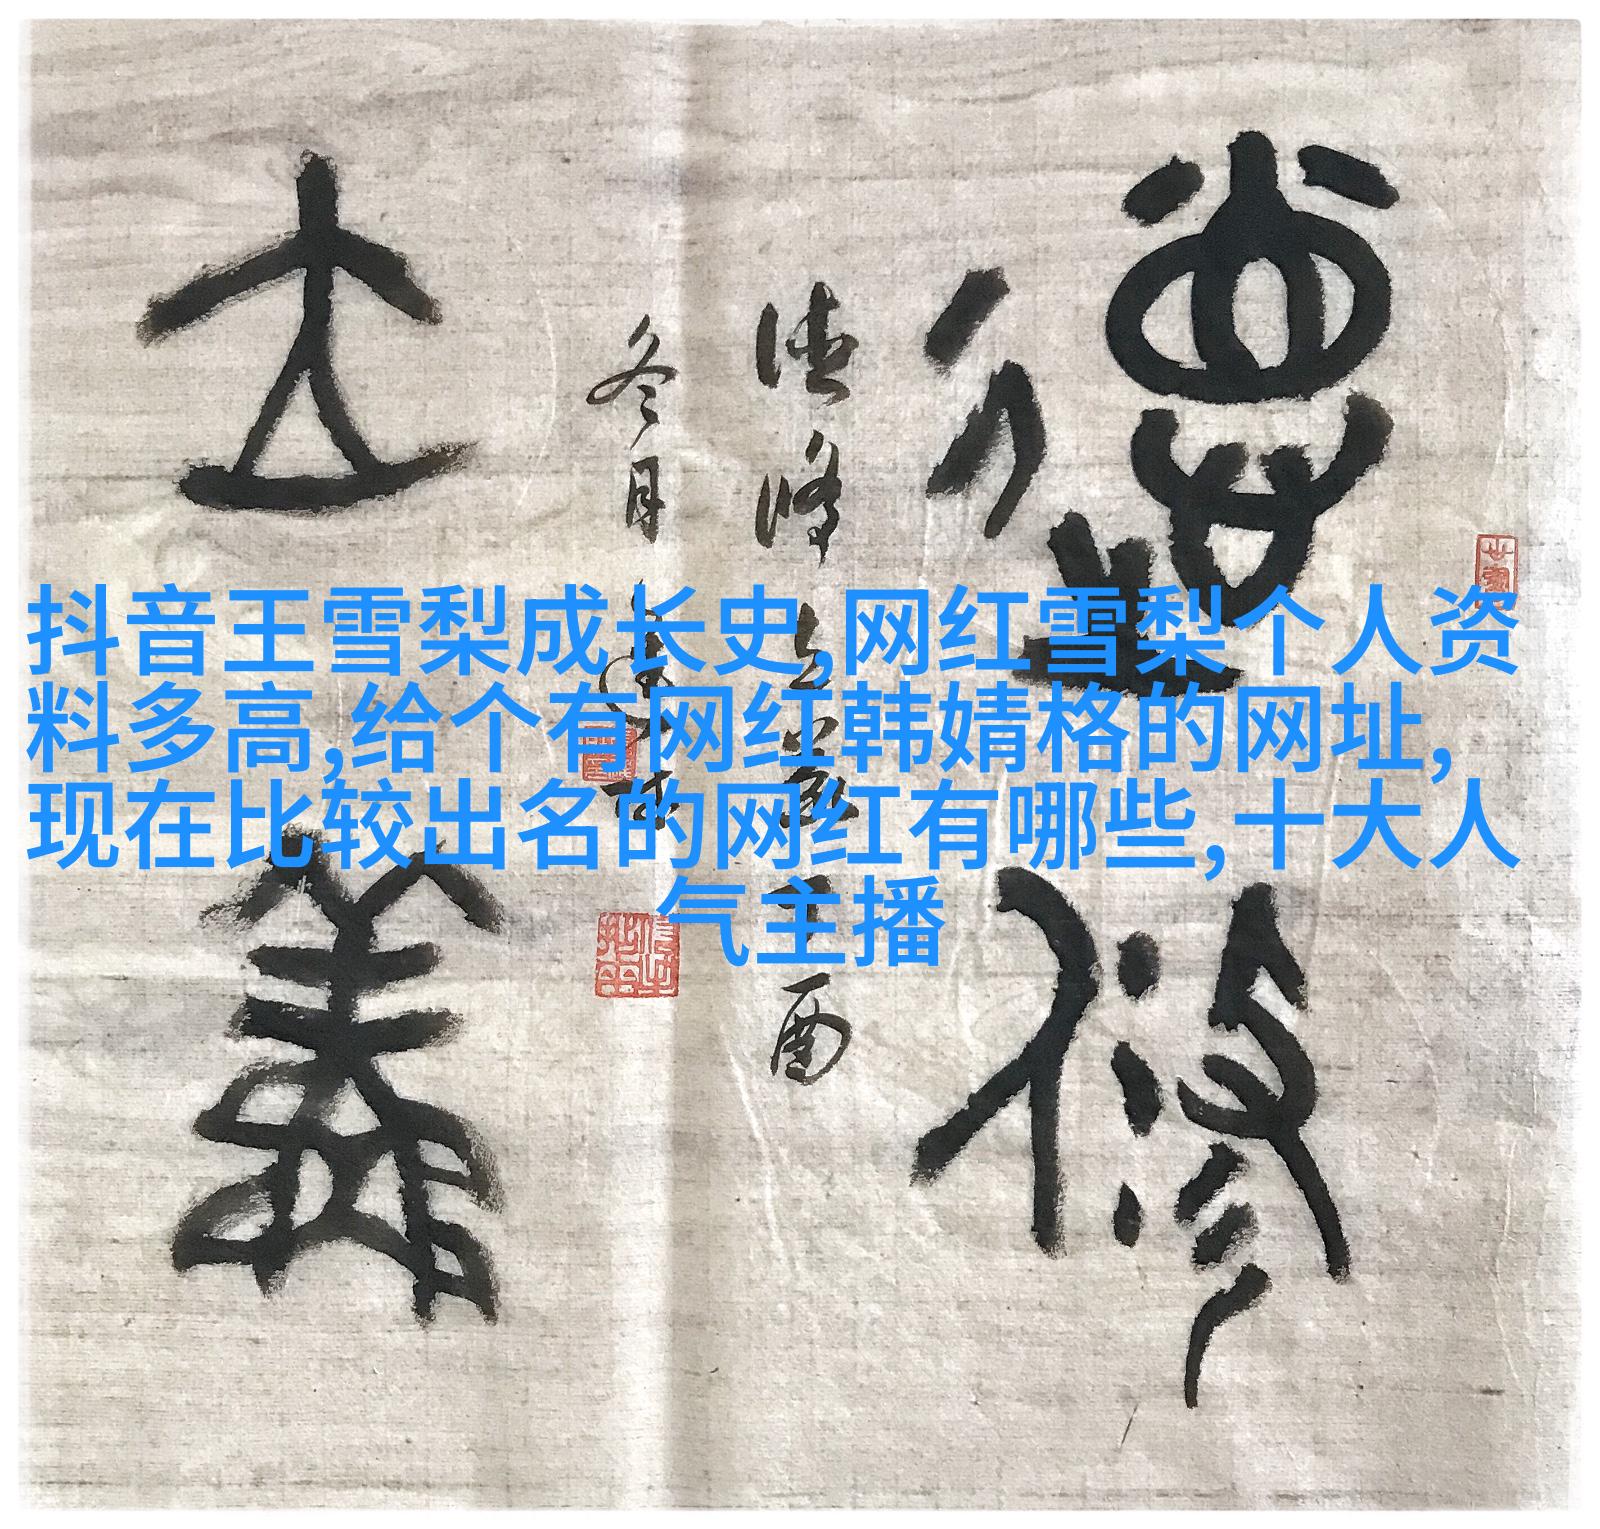 德修
立義
德修立義 丁酉
冬月
抖音王雪梨成长史,网红雪梨个人资
料多高,给个有网红韩婧格的网址,
现在比较出名的网红有哪些,十大人
气主播